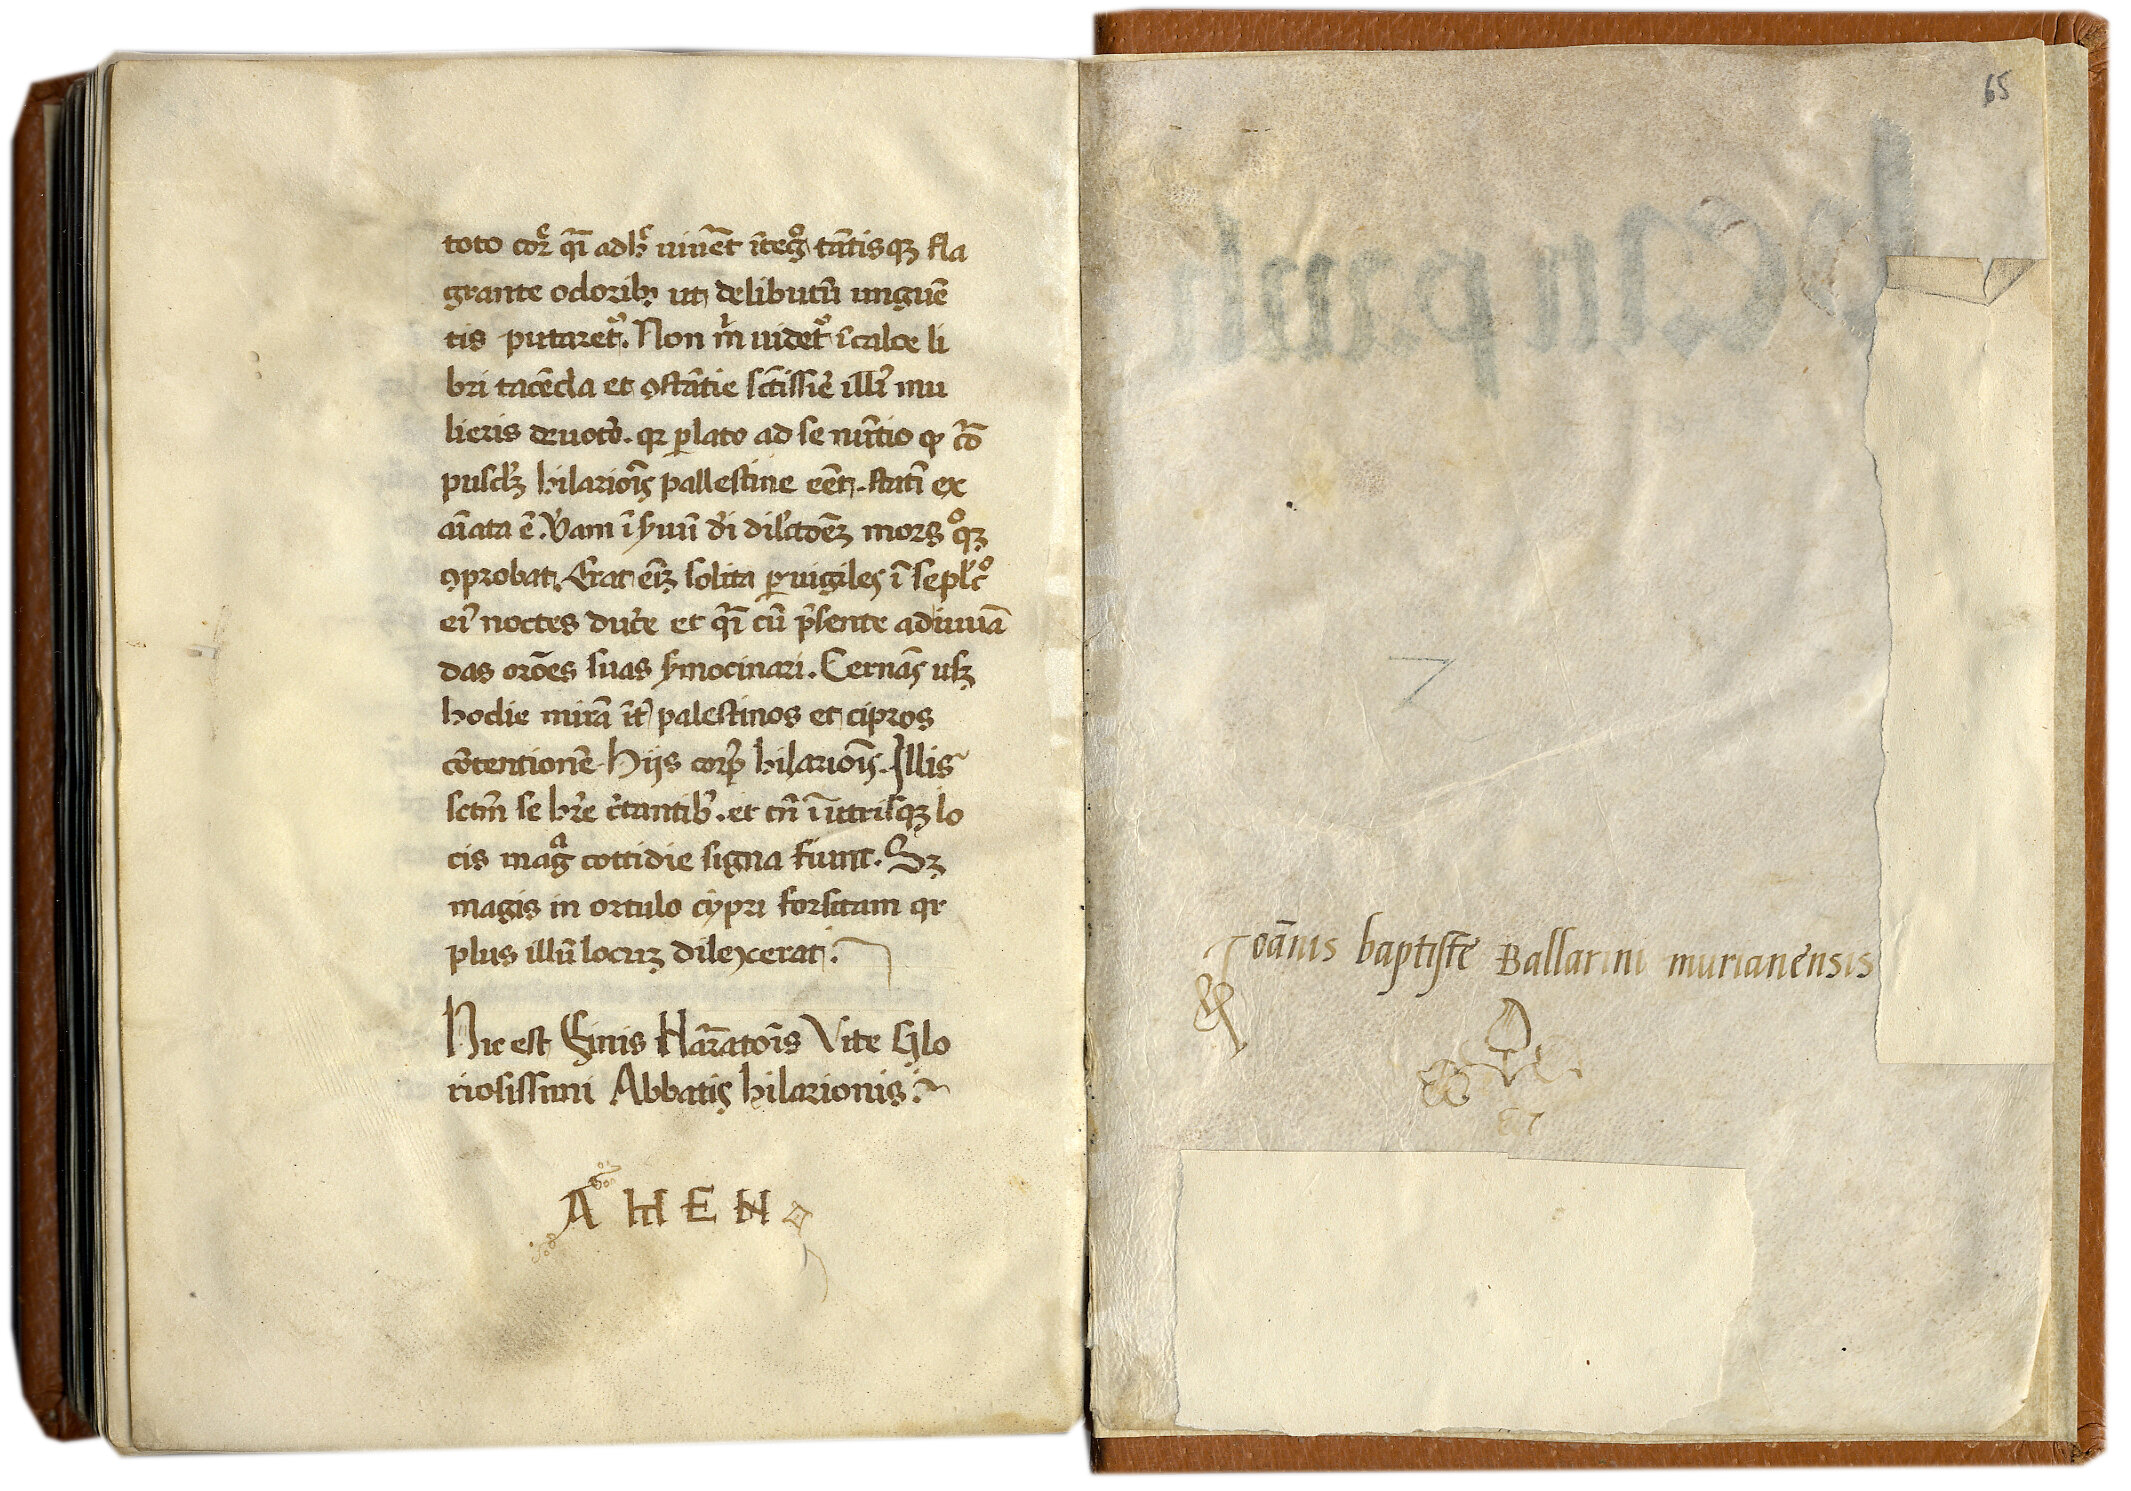 toto cor̃ q̃i adħ uiuẽt ĩtegͦ tãtisqꝫ fla
grante odoribꝫ ut delibutũ unguẽ
tis putaretᷣ. Non m̃ uidetᷣ ĩ calce li
bri tacẽda et ꝯstãtie sc̃tissĩe illĩ mu
lieris deuotõ. qꝛ ꝑlato ad se nũtio ꝙ
pusclꝫ hilariõis pallestine eẽt. statĩ ex
aĩata ẽ. Vam ĩ ẜuũ dĩ dilctõeꝫ mors qͦqꝫ
ꝯprobat. Erat eĩꝫ solita ꝑuigiles ĩ seplcͦ
eĩ noctes duc̃e et q̃i cũ p̃sente ad iuuã
das orões suas ẜmocinari. Cernãs usqꝫ
hodie mirã ĩt̃ palestinos et cipros
cõtentionẽ. Hijs corp̃ hilariõis. Illis
sctm̃ se hr̃e c̃tantibꝰ. et tñ ĩ utrisqꝫ lo
cis magᷓ cottidie signa fiunt. Sꝫ
magis in ortulo cypri forsitam qꝛ
plus illũ locuꝫ dilexcerat.
Hic est Finis Narr̃atõis Vite Glo
riosissimi Abbatis hilarionis.
AMEN
65
Ioãnis baptiste Ballarini murianensis